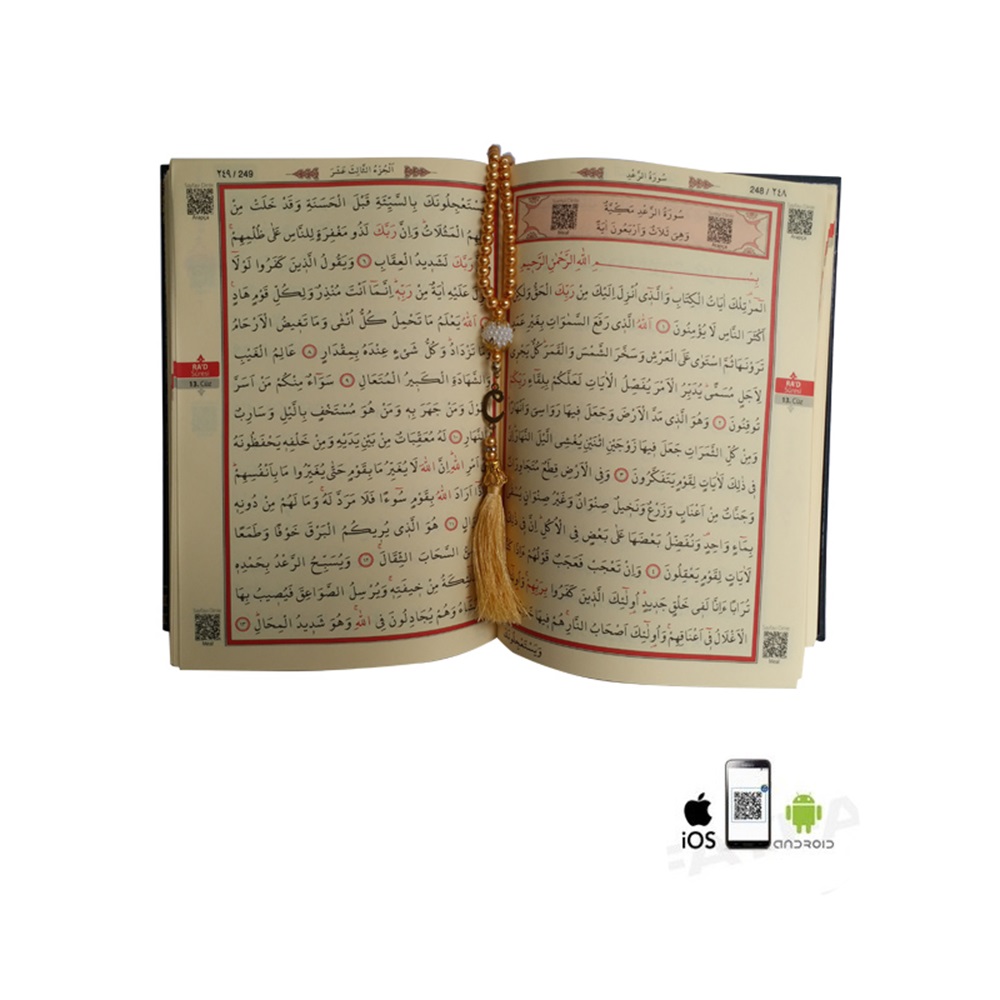 سُورَةُ الرَّعْدِ
248 / ٢٤٨
سُورَةُ الرَّعْدِ مَكِّيَّةٌ
وَهِيَ ثَلَاثٌ وَاَرْبَعُونَ اٰيَةً
بِسْــــمِ اللّٰهِ الرَّحْمٰنِ الرَّحِيمِ
الٓمٓرٰ تِلْكَ اٰيَاتُ الْكِتَابِ وَالَّذٖٓي اُنْزِلَ اِلَيْكَ مِنْ رَبِّكَ الْحَقُّ وَلٰكِنَّ
اَكْثَرَ النَّاسِ لَا يُؤْمِنُونَ ١ اَللّٰهُ الَّذٖي رَفَعَ السَّمٰوَاتِ بِغَيْرِ عَمَدٍ
تَرَوْنَهَا ثُمَّ اسْتَوٰى عَلَى الْعَرْشِ وَسَخَّرَ الشَّمْسَ وَالْقَمَرَ كُلٌّ يَجْرٖي
لِاَجَلٍ مُسَمًّى يُدَبِّرُ الْاَمْرَ يُفَصِّلُ الْاٰيَاتِ لَعَلَّكُمْ بِلِقَٓاءِ رَبِّكُمْ
تُوقِنُونَ ٢ وَهُوَ الَّذٖي مَدَّ الْاَرْضَ وَجَعَلَ فٖيهَا رَوَاسِيَ وَاَنْهَارًا
وَمِنْ كُلِّ الثَّمَرَاتِ جَعَلَ فٖيهَا زَوْجَيْنِ اثْنَيْنِ يُغْشِي الَّيْلَ النَّهَارَ اِنَّ
فٖي ذٰلِكَ لَاٰيَاتٍ لِقَوْمٍ يَتَفَكَّرُونَ ٣ وَفِي الْاَرْضِ قِطَعٌ مُتَجَاوِرَاتٌ
وَجَنَّاتٌ مِنْ اَعْنَابٍ وَزَرْعٌ وَنَخٖيلٌ صِنْوَانٌ وَغَيْرُ صِنْوَانٍ يُسْقٰى
بِمَٓاءٍ وَاحِدٍ وَنُفَضِّلُ بَعْضَهَا عَلٰى بَعْضٍ فِي الْاُكُلِ اِنَّ فٖي ذٰلِكَ
لَاٰيَاتٍ لِقَوْمٍ يَعْقِلُونَ ٤ وَاِنْ تَعْجَبْ فَعَجَبٌ قَوْلُهُمْ ءَاِذَا كُنَّا
تُرَابًا ءَاِنَّا لَفٖي خَلْقٍ جَدٖيدٍ اُو۬لٰٓئِكَ الَّذٖينَ كَفَرُوا بِرَبِّهِمْ وَاُو۬لٰٓئِكَ
الْاَغْلَالُ فٖٓي اَعْنَاقِهِمْ وَاُو۬لٰٓئِكَ اَصْحَابُ النَّارِ هُمْ فٖيهَا
وَيَسْتَعْجِلُونَكَ
RA'D
Sûresi
13. Cüz
Arapça
Meal
٢٤٩ / 249
اَلْجُزْءُ الثَّالِثَ عَشَرَ
يَسْتَعْجِلُونَكَ بِالسَّيِّئَةِ قَبْلَ الْحَسَنَةِ وَقَدْ خَلَتْ مِنْ
قَبْلِهِمُ الْمَثُلَاتُ وَاِنَّ رَبَّكَ لَذُو مَغْفِرَةٍ لِلنَّاسِ عَلٰى ظُلْمِهِمْ
وَاِنَّ رَبَّكَ لَشَدٖيدُ الْعِقَابِ ٦ وَيَقُولُ الَّذٖينَ كَفَرُوا لَوْلَٓا
اُنْزِلَ عَلَيْهِ اٰيَةٌ مِنْ رَبِّهٖ اِنَّمَٓا اَنْتَ مُنْذِرٌ وَلِكُلِّ قَوْمٍ هَادٍ
اَللّٰهُ يَعْلَمُ مَا تَحْمِلُ كُلُّ اُنْثٰى وَمَا تَغٖيضُ الْاَرْحَامُ
وَمَا تَزْدَادُ وَكُلُّ شَيْءٍ عِنْدَهُ بِمِقْدَارٍ ٨ عَالِمُ الْغَيْبِ
وَالشَّهَادَةِ الْكَبٖيرُ الْمُتَعَالِ ٩ سَوَٓاءٌ مِنْكُمْ مَنْ اَسَرَّ
الْقَوْلَ وَمَنْ جَهَرَ بِهٖ وَمَنْ هُوَ مُسْتَخْفٍ بِالَّيْلِ وَسَارِبٌ
بِالنَّهَارِ ١٠ لَهُ مُعَقِّبَاتٌ مِنْ بَيْنِ يَدَيْهِ وَمِنْ خَلْفِهٖ يَحْفَظُونَهُ
مِنْ اَمْرِ اللّٰهِ اِنَّ اللّٰهَ لَا يُغَيِّرُ مَا بِقَوْمٍ حَتّٰى يُغَيِّرُوا مَا بِاَنْفُسِهِمْ
وَاِذَٓا اَرَادَ اللّٰهُ بِقَوْمٍ سُٓوءًا فَلَا مَرَدَّ لَهُ وَمَا لَهُمْ مِنْ دُونِهٖ
مِنْ وَالٍ ١١ هُوَ الَّذٖي يُرٖيكُمُ الْبَرْقَ خَوْفًا وَطَمَعًا
وَيُنْشِئُ السَّحَابَ الثِّقَالَ ١٢ وَيُسَبِّحُ الرَّعْدُ بِحَمْدِهٖ
وَالْمَلٰٓئِكَةُ مِنْ خٖيفَتِهٖ وَيُرْسِلُ الصَّوَاعِقَ فَيُصٖيبُ بِهَا
مَنْ يَشَٓاءُ وَهُمْ يُجَادِلُونَ فِي اللّٰهِ وَهُوَ شَدٖيدُ الْمِحَالِ ١٣
RA'D
Sûresi
13. Cüz
Arapça
Meal
iOS
ANDROID